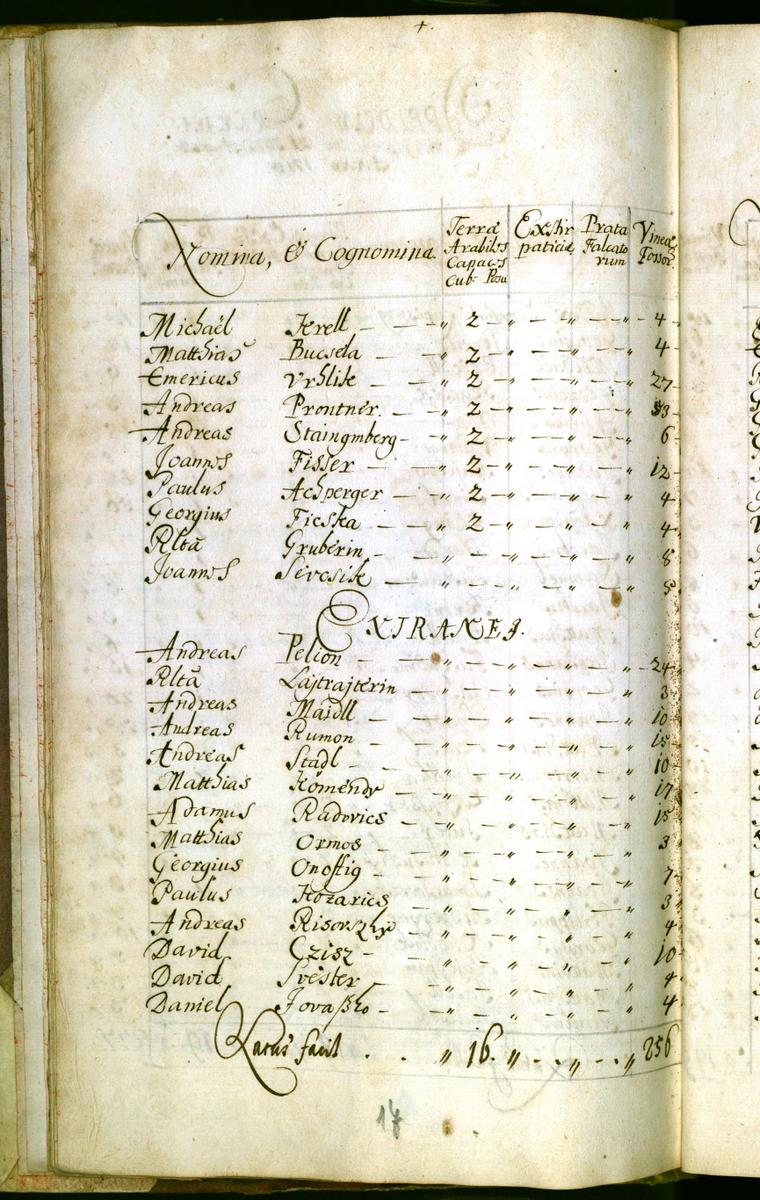 Nomina, & Cognomina.
Terræ Arabiles Capacs Cub: Poson
Exstirpaticiæ
Prata Falcatorum
Vineæ Fossor.
Michaël Krell — — „ 2 — „ — — „ — — „ 4
Matthias Bucsela — „ 2 — „ — — „ — — „ 4
Emericus Vrhlik — „ 2 — „ — — „ — — „ 27
Andreas Prontner. — „ 2 — „ — — „ — — „ 33
Andreas Staingmberg — „ 2 — „ — — „ — — „ 6
Joannes Fisser — „ 2 — „ — — „ — — „ 12
Paulus Achperger — „ 2 — „ — — „ — — „ 4
Georgius Ficska — „ 2 — „ — — „ — — „ 4
Rltã Gruberin — „ — — „ — — „ — — „ 8
Joannes Sevcsik — „ — — „ — — „ — — „ 5
EXTRANEJ.
Andreas Pelion — „ — — „ — — „ — — „ 24
Rltã Lastrajterin — „ — — „ — — „ — — „ 3
Andreas Maidll — „ — — „ — — „ — — „ 10
Andreas Rumon — „ — — „ — — „ — — „ 15
Andreas Stadl — „ — — „ — — „ — — „ 10
Matthias Kömendy — „ — — „ — — „ — — „ 17
Adamus Radovics — „ — — „ — — „ — — „ 15
Matthias Ormos — „ — — „ — — „ — — „ 3
Georgius Onoffig — „ — — „ — — „ — — „ 7
Paulus Kozarics — „ — — „ — — „ — — „ 3
Andreas Risovszky — „ — — „ — — „ — — „ 4
David Czisz — „ — — „ — — „ — — „ 10
David Svester — „ — — „ — — „ — — „ 4
Daniel — „ — — „ — — „ — — „ 4
Latus facit . . „ 16. „ . . „ . . „ 256
17